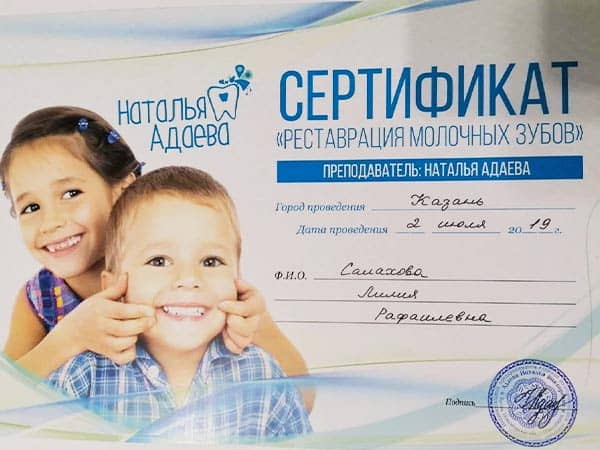 Наталья
Адаева
СЕРТИФИКАТ
«РЕСТАВРАЦИЯ МОЛОЧНЫХ ЗУБОВ»
ПРЕПОДАВАТЕЛЬ: НАТАЛЬЯ АДАЕВА
Город проведения Казань
Дата проведения 2 июля 2019 г.
Ф.И.О. Салахова
Лилия
Рафаилевна
Подпись